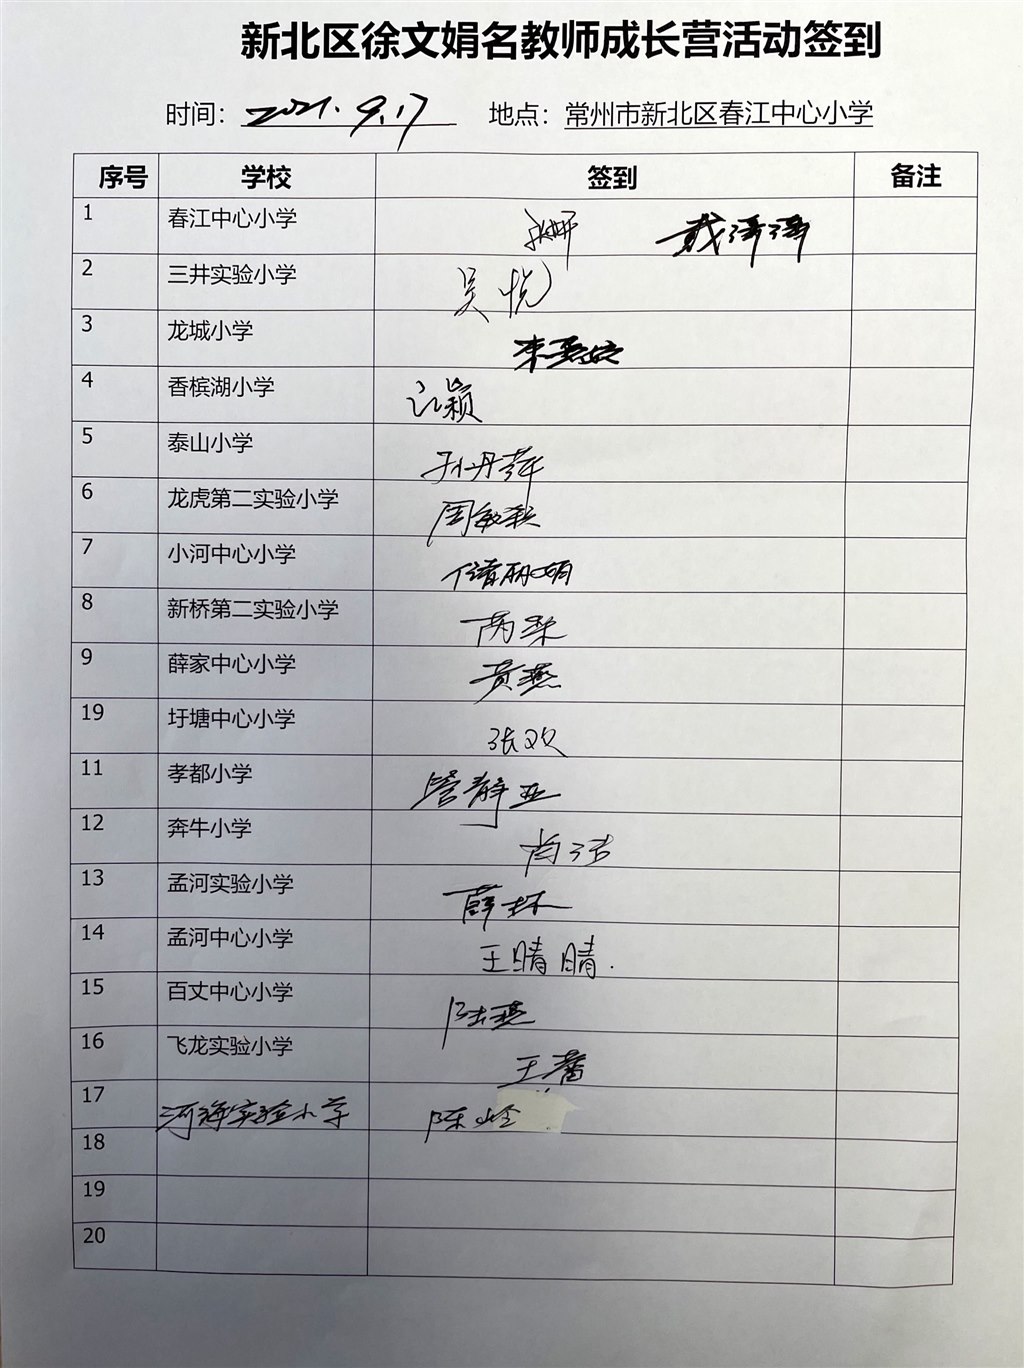 新北区徐文娟名教师成长营活动签到
时间：2021.9.17 地点：常州市新北区春江中心小学
序号 学校 签到 备注
1 春江中心小学
2 三井实验小学 吴悦
3 龙城小学
4 香槟湖小学
5 泰山小学 孙丹萍
6 龙虎第二实验小学
7 小河中心小学 倩丽娟
8 新桥第二实验小学
9 薛家中心小学 黄燕
19 圩塘中心小学 张欢
11 孝都小学 管静亚
12 奔牛小学 肖洁
13 孟河实验小学 薛林
14 孟河中心小学 王晴晴.
15 百丈中心小学 陆燕
16 飞龙实验小学
17 河海实验小学 陈岭
18
19
20